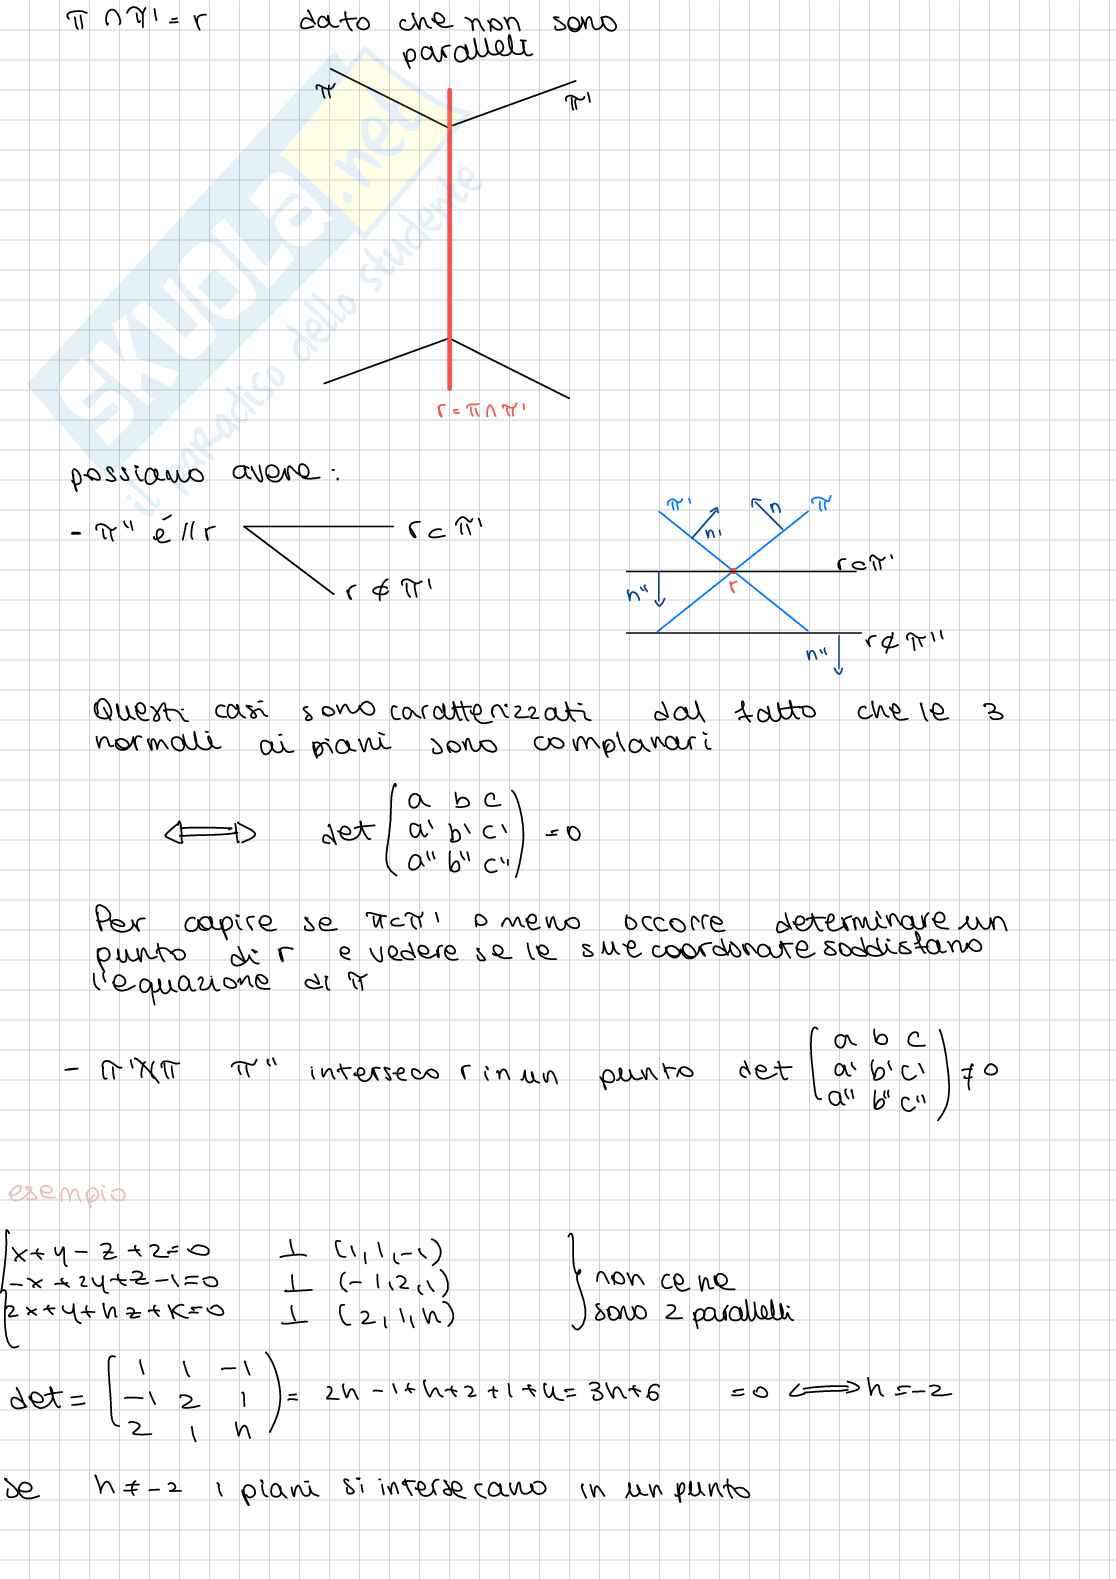 π ∩ π' = r dato che non sono
paralleli
π
π'
SKUOLA.net
il paradiso dello studente
r = π ∩ π'
possiamo avere:
- π" é // r r ⊂ π'
r ⊄ π'
π' n' n π
r ⊂ π'
n" r
r ⊄ π"
n"
Questi casi sono caratterizzati dal fatto che le 3
normali ai piani sono complanari
⟺ det ( a b c
a' b' c'
a" b" c" ) = 0
Per capire se π⊂π' o meno occorre determinare un
punto di r e vedere se le sue coordonate soddisfano
l'equazione di π
- π' ∦ π π" interseco r in un punto det ( a b c
a' b' c'
a" b" c" ) ≠ 0
esempio
x+y-z+2=0 ⊥ (1,1,-1)
-x+2y+z-1=0 ⊥ (-1,2,1) non ce ne
2x+y+hz+k=0 ⊥ (2,1,h) sono 2 parallelli
det = ( 1 1 -1
-1 2 1
2 1 h ) = 2h-1+h+2+1+4=3h+6 =0 ⟺ h=-2
se h≠-2 i piani si intersecano in un punto